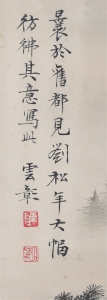 曩於舊都見劉松年大幅
彷彿其意寫此 雲章